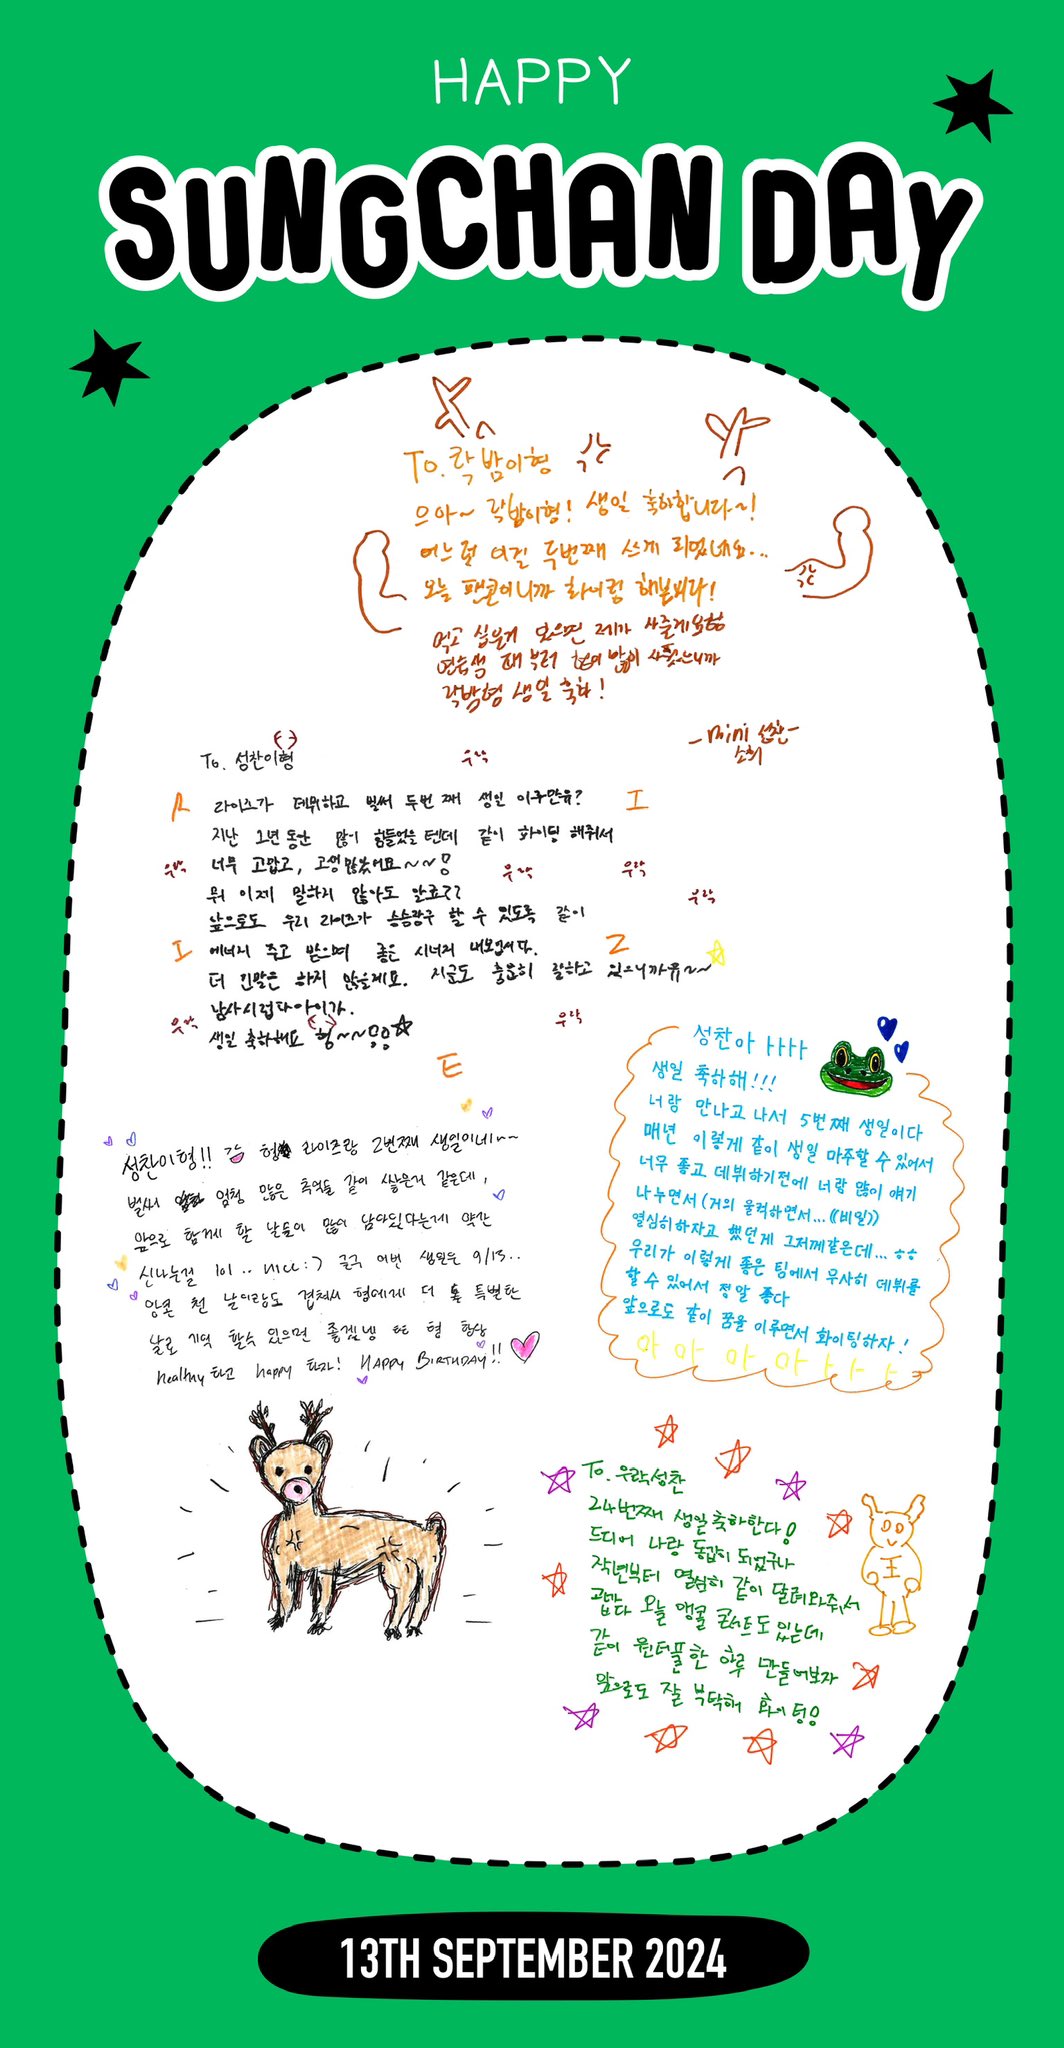 HAPPY
SUNGCHAN DAY
To. 락밤이형
으아~ 락밤이형! 생일 축하합니다~!
어느덧 이걸 두번째 쓰게 되었네요...
오늘 팬콘이니까 화이팅 해봅시다!
먹고 싶은거 있으면 제가 사줄게요형
연습생 때부터 형이 많이 사줬으니까
락밤형 생일 축하!
-mini 성찬-
소희
To. 성찬이형
우락
R 라이즈가 데뷔하고 벌써 두번 째 생일 이구만유? I
지난 1년 동안 많이 힘들었을 텐데 같이 화이팅 해줘서
우락 너무 고맙고, 고생 많았어요~~! 우락 우락
뭐 이제 말하지 않아도 알죠??
앞으로도 우리 라이즈가 승승장구 할 수 있도록 같이 우락
I 에너지 주고 받으며 좋은 시너지 내보입시다. Z
더 긴말은 하지 않을게요. 지금도 충분히 잘하고 있으니까유~~
남사시럽다아이가.
우락 생일 축하해요 형~~!! 우락
E
성찬이형!! 형 라이즈랑 2번째 생일이네~~
벌써 엄청 많은 추억들 같이 쌓은거 같은데,
앞으로 함께 할 날들이 많이 남아있다는게 약간
신나는걸 lol .. nice :) 글구 이번 생일은 9/13..
앙콘 첫 날이랑도 겹쳐서 형에게 더 특별한
날로 기억 할수 있으면 좋겠넹 형 항상
healthy 하고 happy 하자! HAPPY BIRTHDAY!!
성찬아ㅏㅏㅏㅏ
생일 축하해!!!
너랑 만나고 나서 5번째 생일이다
매년 이렇게 같이 생일 마주할 수 있어서
너무 좋고 데뷔하기전에 너랑 많이 얘기
나누면서(거의 울컥하면서...((비밀))
열심히하자고 했던게 그저께같은데... ㅎㅎ
우리가 이렇게 좋은 팀에서 무사히 데뷔를
할 수 있어서 정말 좋다
앞으로도 같이 꿈을 이루면서 화이팅하자!
아 아 아 아 ㅏ ㅏ ㅏ
To. 우락성찬
24번째 생일축하한다!
드디어 나랑 동갑이 되었구나
작년부터 열심히 같이 달려와줘서
고맙다 오늘 앵콜 콘서트도 있는데
같이 원더풀한 하루 만들어보자
앞으로도 잘 부탁해 화이팅!
王
13TH SEPTEMBER 2024